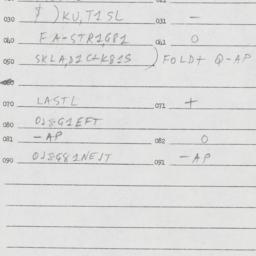 $ )KU,T1SL 031 —
040 F A-STR1G81 041 0
050 SKLA,D1CLK81S ) FOLD+ Q-AP
060
070 LASTL 071 +
080 OJ8G1EFT
081 -AP 082 0
090 OJ8G81NEJT 091 -AP